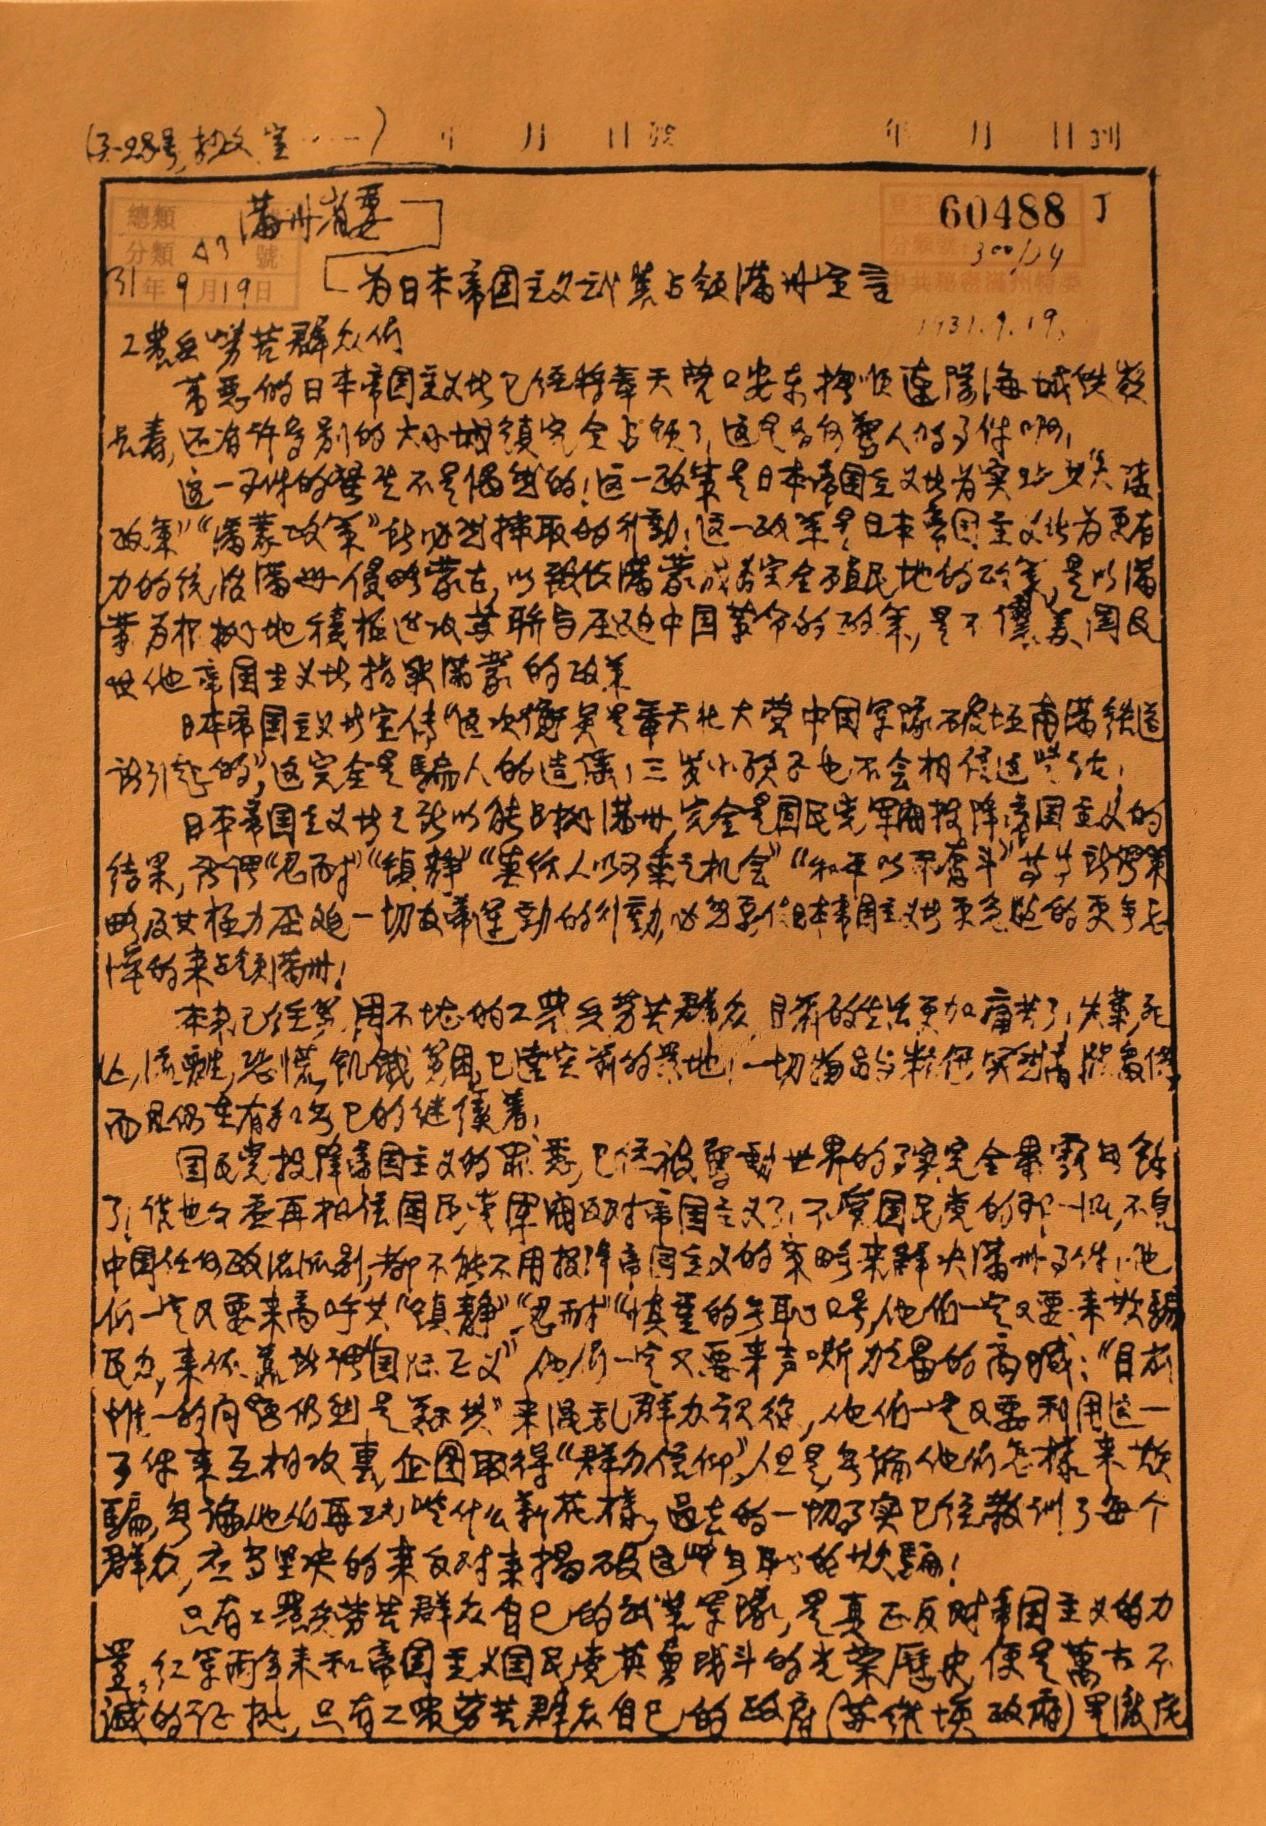 年 月 日 年 月 日到
满州省委
60488
總類
分類 A3 號
300/14
31年9月19日
为日本帝国主义武装占领满州宣言
1931.9.19.
工農兵劳苦群众们
萬惡的日本帝国主义者已经将奉天營口安东撫順遼陽海城铁嶺
长春,还有許多别的大小城镇完全占领了,这是多么驚人的事件啊!
这一事件的發生不是偶然的!这一政策是日本帝国主义者为实现其"大陸
政策""满蒙政策"所必然採取的行動!这一政策是日本帝国主义者为更有
力的统治满州侵略蒙古,以致使满蒙成为完全殖民地的政策,是以满
蒙为根据地積極進攻苏聯与压迫中国革命的政策,是不讓美国
其他帝国主义者指染满蒙的政策
日本帝国主义者宣传"这次衝突是奉天北大营中国军隊破坏南满铁道
所引起的",这完全是騙人的造谣!三岁小孩子也不会相信这些话!
日本帝国主义者之所以能占据满州,完全是国民党军阀投降帝国主义的
结果,所谓"忍耐""镇静""莫给人以可乘之机会""和平以求奋斗"等
略及其極力压迫一切反帝運動的行動,必然要使日本帝国主义者更急進的更
悍的来占领满州!
本来已经穷困不堪的工農兵劳苦群众,目前的生活更加痛苦了!失業,死
亡,流離,恐慌,饥饿穷困,已達空前的景地!一切
而且仍在有加无已的继续着!
国民党投降帝国主义的罪惡,已经被驚動世界的事实完全暴露无餘
了!谁也不要再相信国民党军阀反对帝国主义了!不管国民党的那一派,不管
中国任何政治派别,都不能不用投降帝国主义的策略来解决满州事件!他
们一定又要来高呼其"镇静""忍耐""慎重"的无恥口号,他们一定又要来欺騙
民众,来依靠所谓"国际正义",他们一定又要来声嘶力竭的高喊:"目前
惟一的 仍然是剿共"来混乱群众视线,他们一定又要利用这一
事件来互相攻裏,企图取得"群众信仰",但是无論他们怎樣来欺
騙,无論他们再玩些什么新花樣,過去的一切事实已经教训了每个
群众,应当坚决的来反对来揭破这些无恥的欺騙!
只有工農兵劳苦群众自己的武装军隊,是真正反对帝国主义的力
量,红军兩年来和帝国主义国民党英勇战斗的光荣歷史,便是萬古不
滅的证据,只有工農劳苦群众自己的政府(苏维埃政府)是徹底